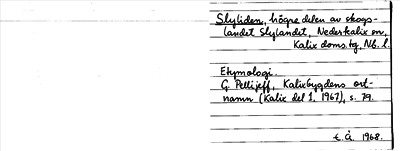 Slyliden, högre delen av skogs-
landet Slylandet, Nederkalix sn,
Kalix doms.tg, Nb. l.
Etymologi.
G. Pellijeff, Kalixbygdens ort-
namn (Kalix del 1, 1967), s. 79.
E. Å. 1968.